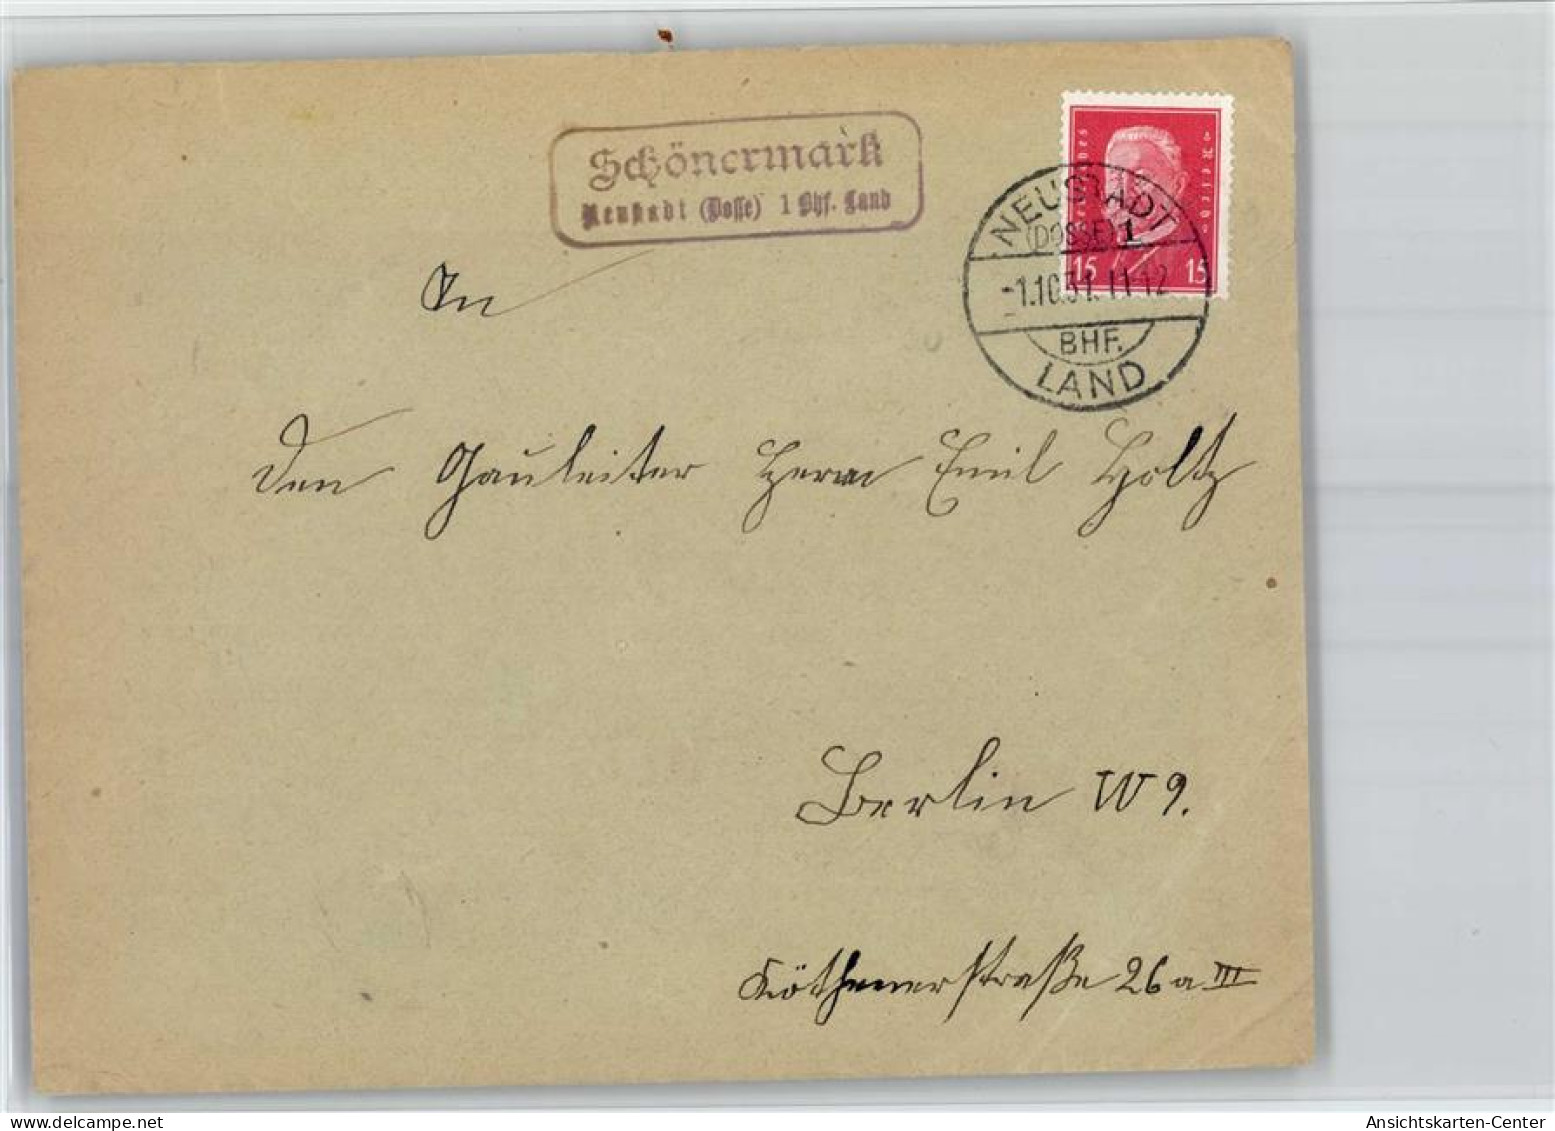 Schönermark
Neustadt (Dosse) 1 Bhf. Land
NEUSTADT
(DOSSE) 1
-1.10.31. 11-12
BHF.
LAND
15 15
An
Den Gauleiter Herrn Emil Holtz
Berlin W 9.
Köthenerstraße 26 a III
Ansichtskarten-Center